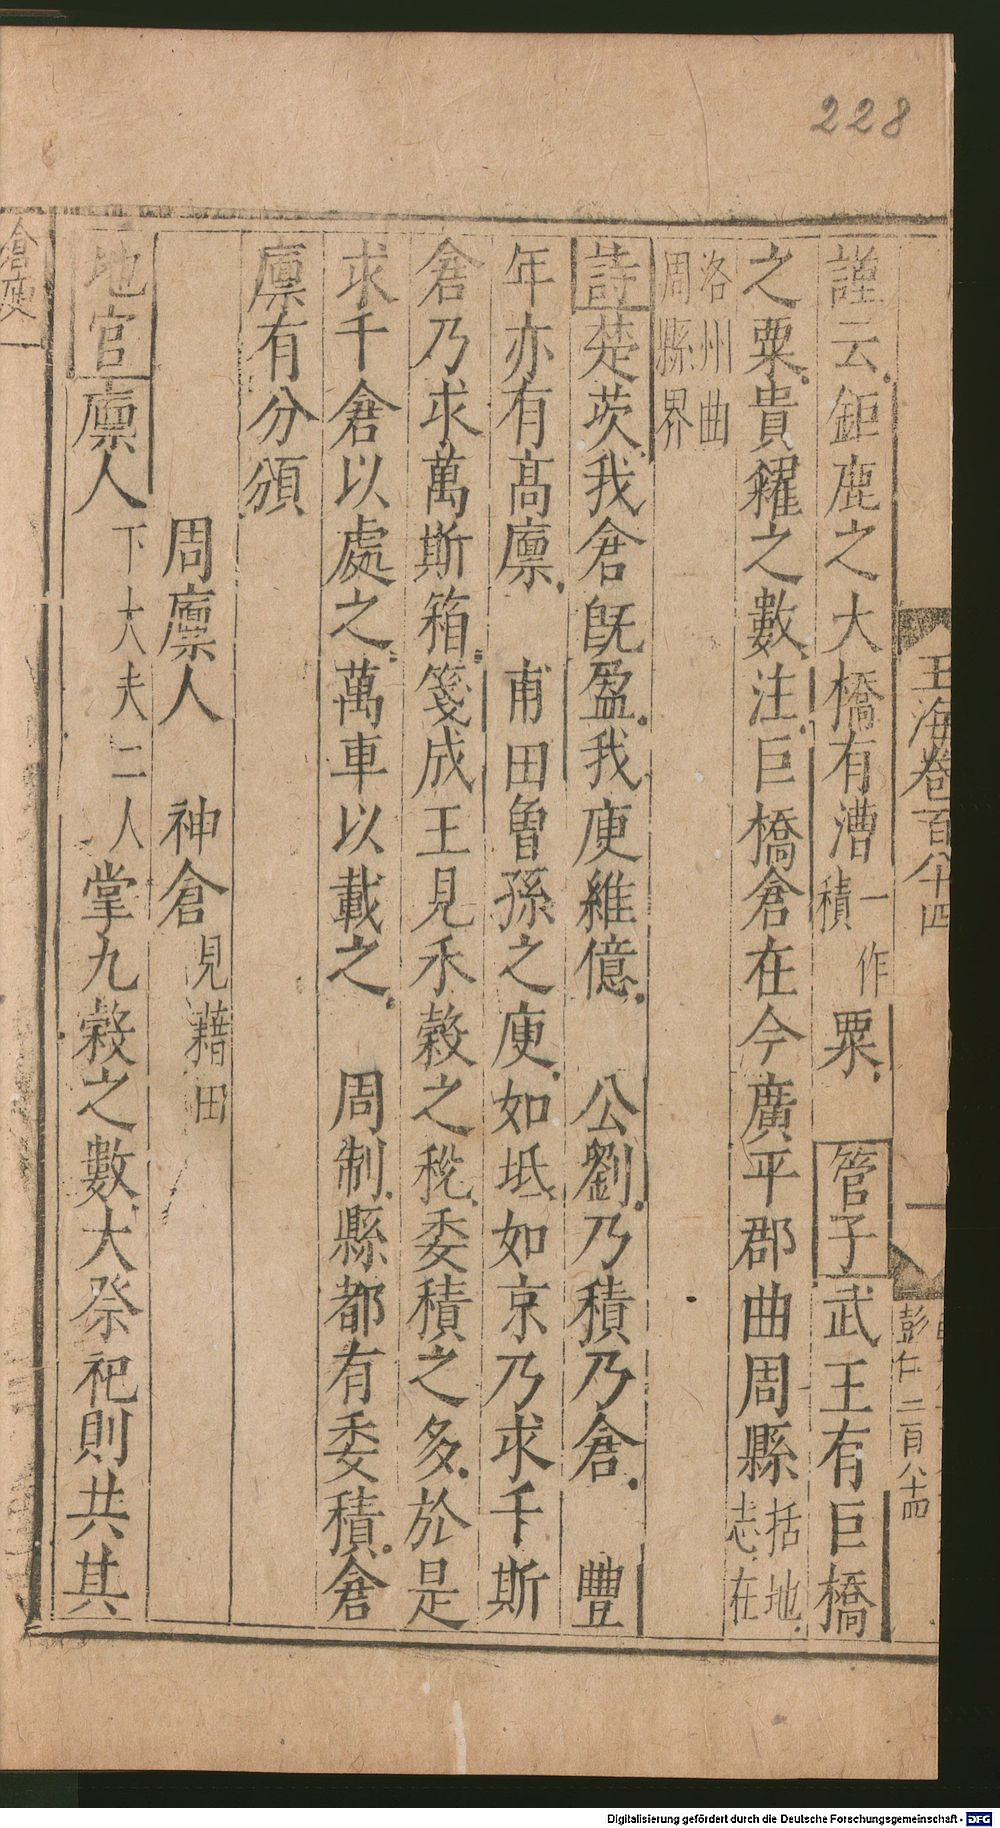 228
玉海卷百八十四
彭仁二百八十四
謹云鉅鹿之大橋有漕一作積粟 管子武王有巨橋
之粟貴糴之數注巨橋倉在今廣平郡曲周縣括地志在
洛州曲周縣界
詩楚茨我倉旣盈我庾維億 公劉乃積乃倉 豐
年亦有高廪 甫田曾孫之庾如坻如京乃求千斯
倉乃求萬斯箱箋成王見禾穀之稅委積之多於是
求千倉以處之萬車以載之 周制縣都有委積倉
廪有分頒
周廪人 神倉見藉田
地官廪人下大夫二人掌九穀之數大祭祀則共其
倉庾一
Digitalisierung gefördert durch die Deutsche Forschungsgemeinschaft - DFG